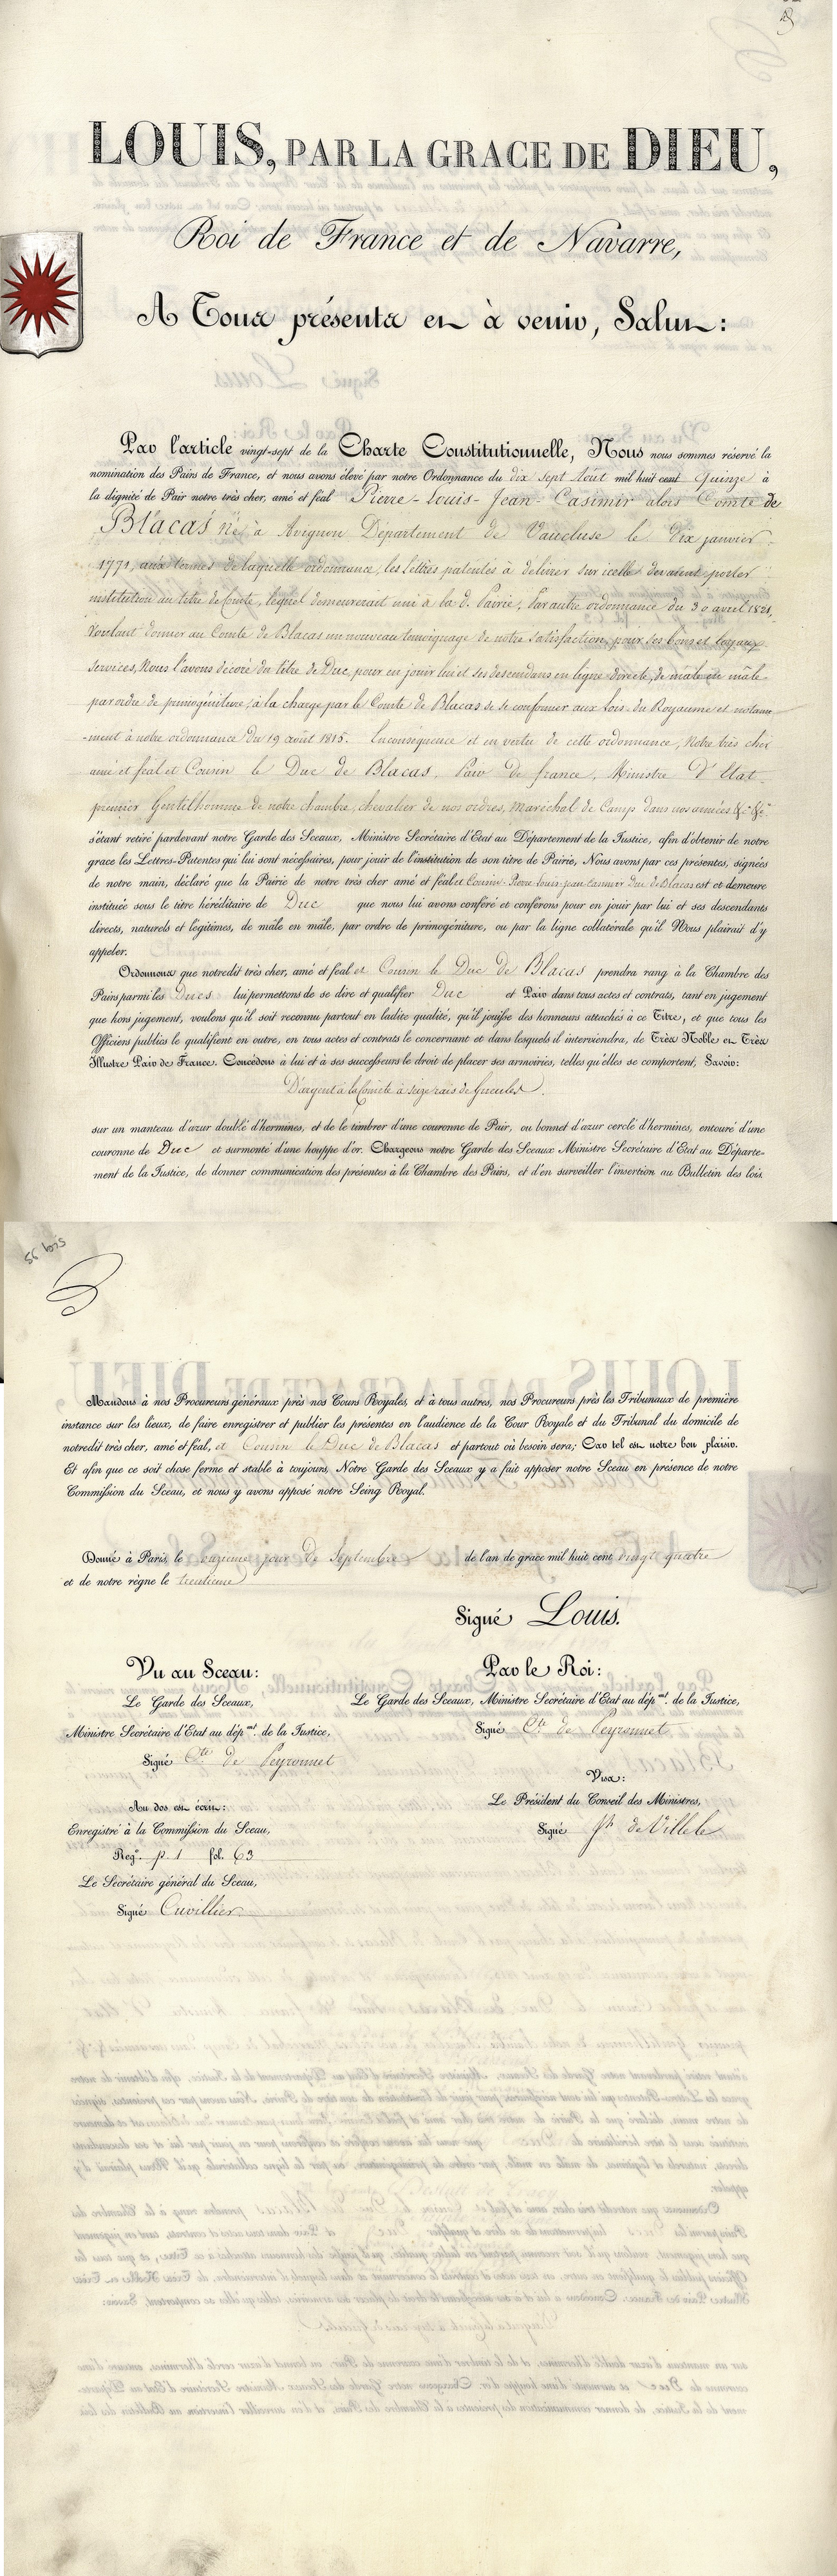 LOUIS, PAR LA GRACE DE DIEU,
Roi de France et de Navarre,
A Tous présents et à venir, Salut:
Par l'article vingt-sept de la Charte Constitutionnelle, Nous nous sommes réservé la
nomination des Pairs de France, et nous avons élevé par notre Ordonnance du dix sept Aout mil huit cent Quinze à
la dignité de Pair notre très cher, amé et féal Pierre-Louis-Jean-Casimir alors Comte de
Blacas né à Avignon Département de Vaucluse le dix janvier
1771, aux termes de laquelle ordonnance, les lettres patentes à délivrer sur icelle devaient porter
institution au titre de Comte, lequel demeurerait uni à la d. Pairie, Par autre ordonnance du 30 avril 1821,
voulant donner au Comte de Blacas un nouveau témoignage de notre satisfaction, pour ses bons et loyaux
services, Nous l'avons décoré du titre de Duc, pour en jouir lui et ses descendans en ligne directe, de mâle en mâle
par ordre de primogéniture, à la charge par le Comte de Blacas de se conformer aux Lois du Royaume et notam-
-ment à notre ordonnance du 19 août 1815. En conséquence et en vertu de cette ordonnance, Notre très cher
amé et féal et Cousin le Duc de Blacas, Pair de france, Ministre d'Etat
premier Gentilhomme de notre chambre, chevalier de nos ordres, maréchal de Camp dans nos armées &ca &ca
s'étant retiré pardevant notre Garde des Sceaux, Ministre Secrétaire d'Etat au Département de la Justice, afin d'obtenir de notre
grace les Lettres-Patentes qui lui sont nécessaires, pour jouir de l'institution de son titre de Pairie, Nous avons par ces présentes, signées
de notre main, déclaré que la Pairie de notre très cher amé et féal et Cousin Pierre louis jean casimir Duc de Blacas est et demeure
instituée sous le titre héréditaire de Duc que nous lui avons conféré et conférons pour en jouir par lui et ses descendants
directs, naturels et légitimes, de mâle en mâle, par ordre de primogéniture, ou par la ligne collatérale qu'il Nous plairait d'y
appeler.
Ordonnons que notredit très cher, amé et féal et Cousin le Duc de Blacas prendra rang à la Chambre des
Pairs parmi les Ducs lui permettons de se dire et qualifier Duc et Pair dans tous actes et contrats, tant en jugement
que hors jugement, voulons qu'il soit reconnu partout en ladite qualité, qu'il jouisse des honneurs attachés à ce Titre, et que tous les
Officiers publics le qualifient en outre, en tous actes et contrats le concernant et dans lesquels il interviendra, de Très Noble et Très
Illustre Pair de France. Concédons à lui et à ses successeurs le droit de placer ses armoiries, telles qu'elles se comportent, Savoir:
D'argent à la Comète à seize rais de Gueules.
sur un manteau d'azur doublé d'hermines, et de le timbrer d'une couronne de Pair, ou bonnet d'azur cerclé d'hermines, entouré d'une
couronne de Duc et surmonté d'une houppe d'or. Chargeons notre Garde des Sceaux Ministre Secrétaire d'Etat au Départe-
ment de la Justice, de donner communication des présentes à la Chambre des Pairs, et d'en surveiller l'insertion au Bulletin des lois.
56 bis
Mandons à nos Procureurs généraux près nos Cours Royales, et à tous autres, nos Procureurs près les Tribunaux de première
instance sur les lieux, de faire enregistrer et publier les présentes en l'audience de la Cour Royale et du Tribunal du domicile de
notredit très cher, amé et féal, et Cousin le Duc de Blacas et partout où besoin sera; Car tel est notre bon plaisir.
Et afin que ce soit chose ferme et stable à toujours, Notre Garde des Sceaux y a fait apposer notre Sceau en présence de notre
Commission du Sceau, et nous y avons apposé notre Seing Royal.
Donné à Paris, le onzième jour de Septembre de l'an de grace mil huit cent vingt quatre
et de notre règne le trentième
Signé Louis.
Vu au Sceau:
Le Garde des Sceaux,
Ministre Secrétaire d'Etat au dépmt. de la Justice,
Signé Cte de Peyronnet
Par le Roi:
Le Garde des Sceaux, Ministre Secrétaire d'Etat au dépmt. de la Justice,
Signé Cte de Peyronnet
Visa:
Le Président du Conseil des Ministres,
Signé Jh de Villele
Au dos est écrit:
Enregistré à la Commission du Sceau,
Regre. p. 1 fol. 63
Le Secrétaire général du Sceau,
Signé Cuvillier